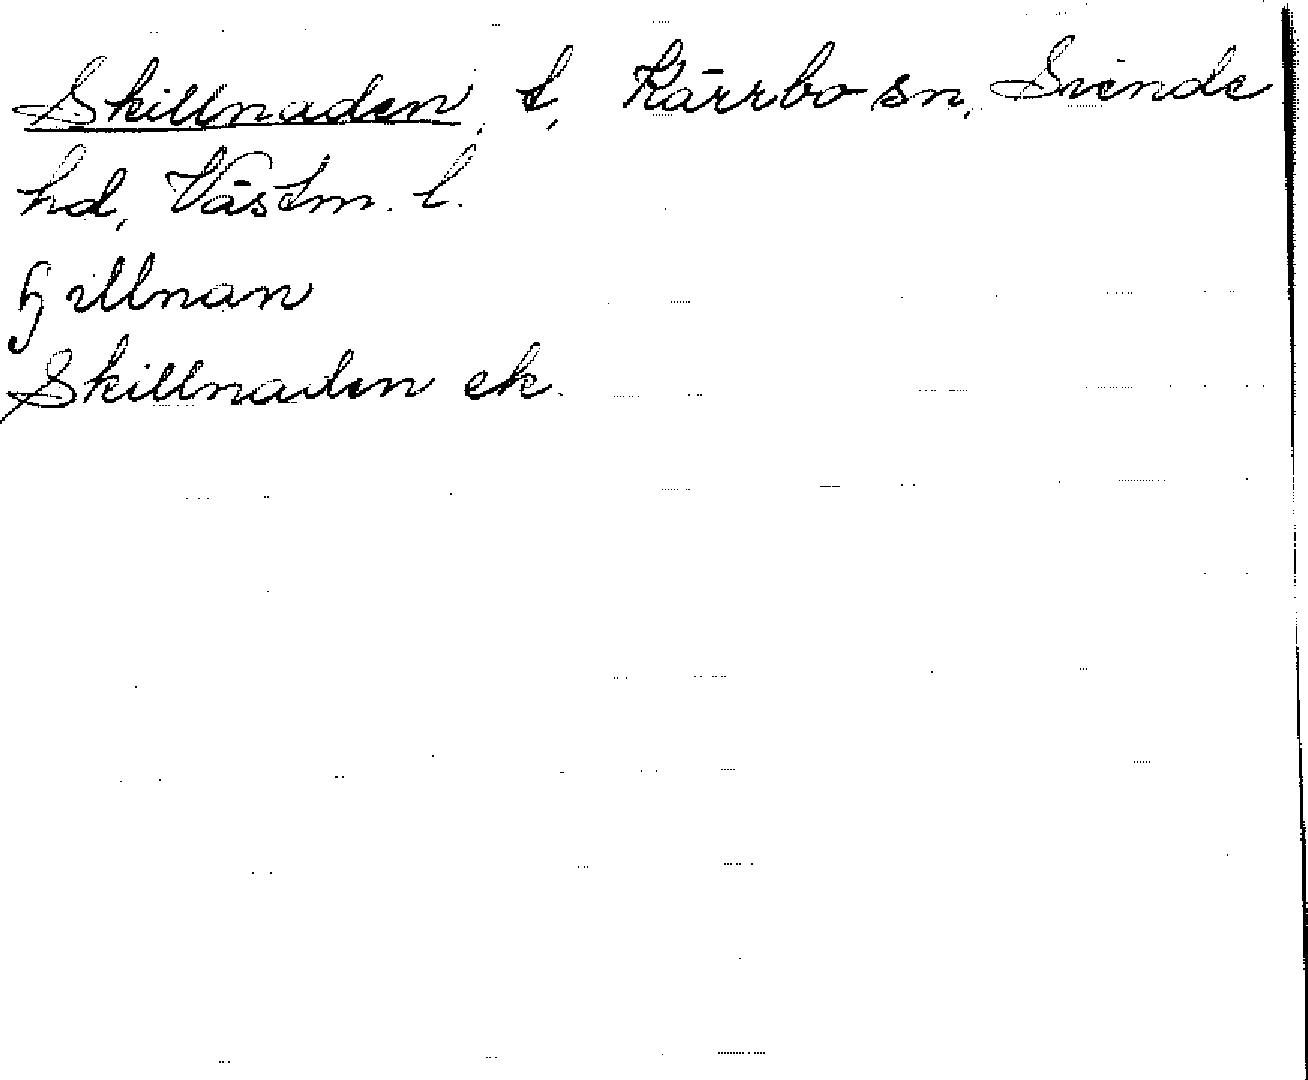 Skillnaden, t, Kärrbo sn, Siende
hd, Västm. l.
ɧillnan
Skillnaden ek.